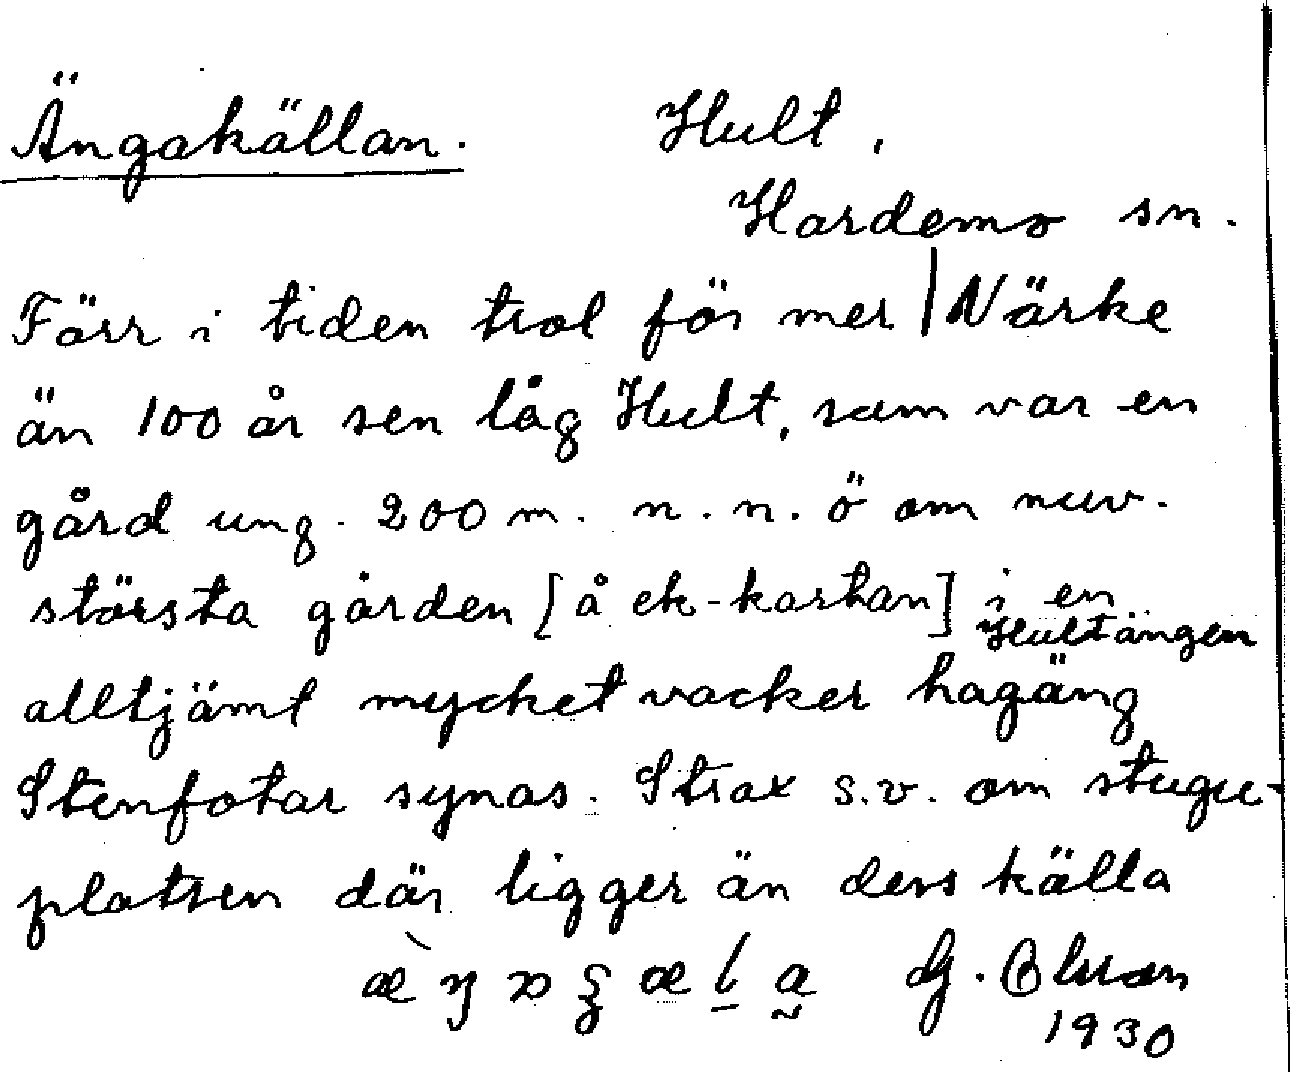 Ängakällan. Hult,
Hardemo sn.
Förr i tiden trol för mer | Närke
än 100 år sen låg Hult, som var en
gård ung. 200 m. n.n.ö om nuv.
största gården [å ek-kartan] i en
Hultängen
alltjämt mycket vacker hagäng
Stenfotar synas. Strax s.v. om stugu-
platsen där ligger än dess källa
G. Olsson
1930